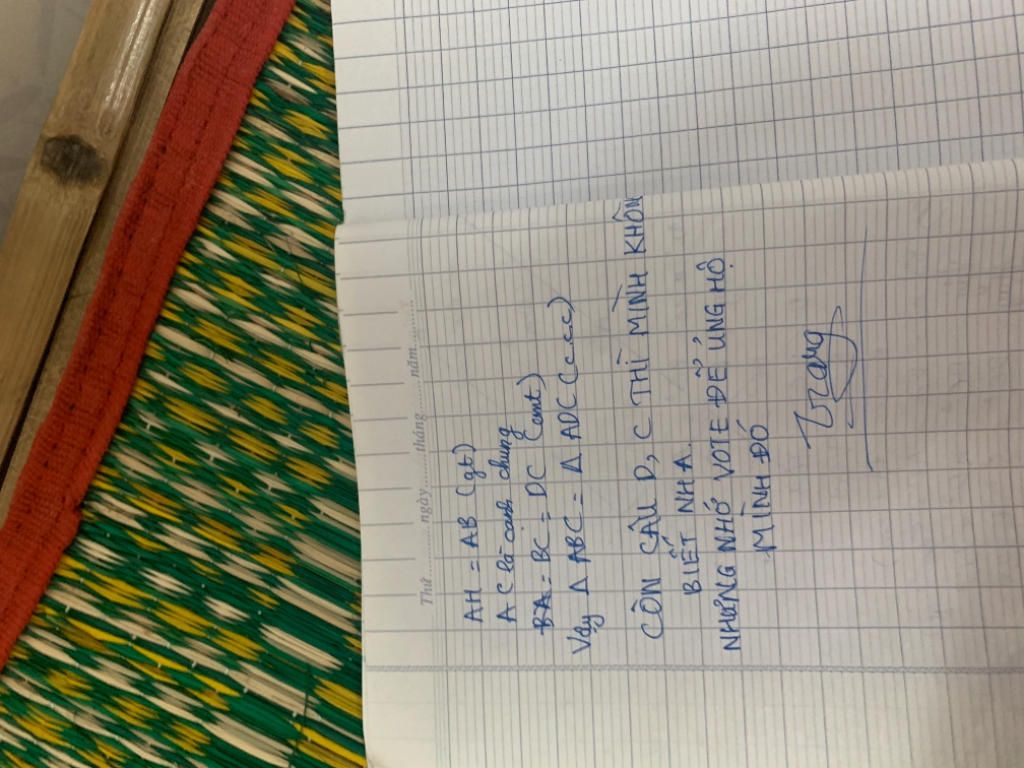 Thứ ........ ngày ........ tháng ........ năm ........
AH = AB (gt)
AC là cạnh chung
BA = BC = DC (cmt)
Vậy Δ ABC = Δ ADC (c.c.c)
CÒN CÂU D, C THÌ MÌNH KHÔN
BIẾT NHA.
NHƯNG NHỚ VOTE ĐỂ ỦNG HỘ
MÌNH ĐÓ
Trang